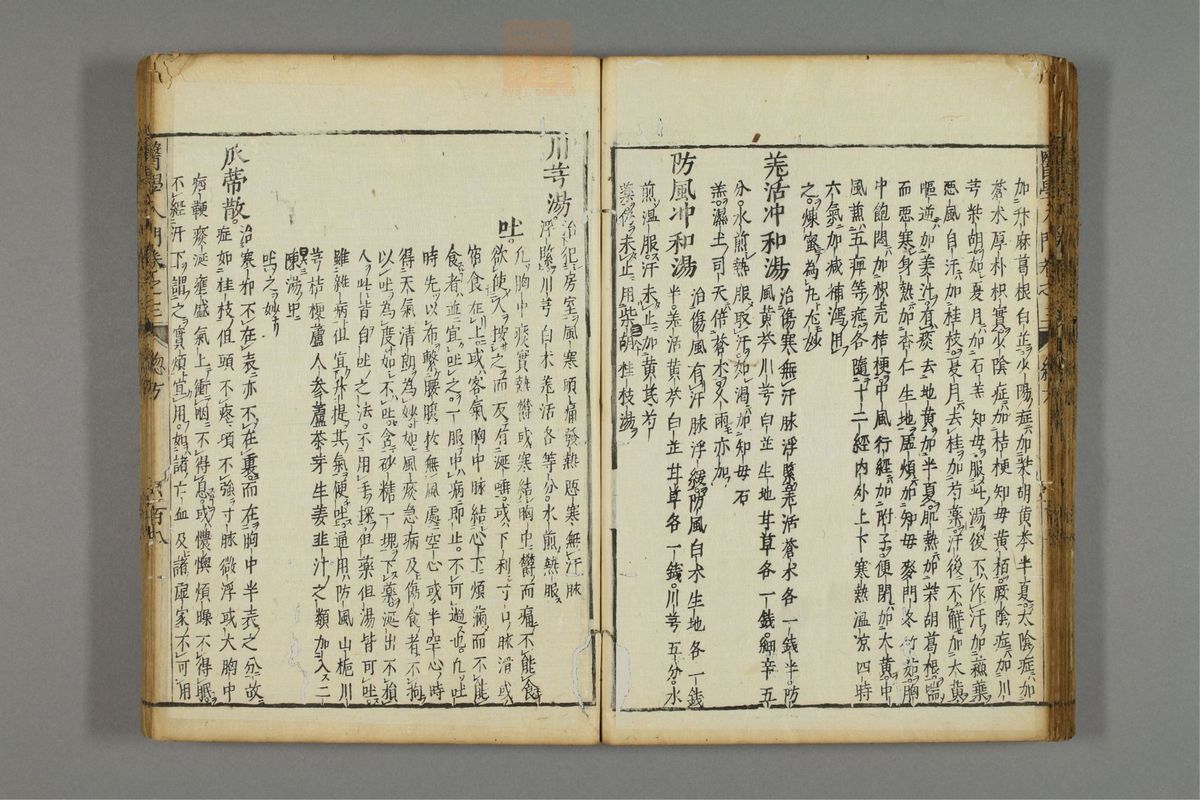 加升麻葛根白芷少陽症加柴胡黃芩半夏太陰症加
蒼朮厚朴枳實少陰症加桔梗知毋黃栢厥陰症加川
芎柴胡如夏月加石羔知毋服此湯後不作汗加蘇葉
惡風自汗加桂枝夏月去桂加芍藥汗後不解加大黃
嘔逆加姜汁有痰去地黃加半夏肌熱加柴胡葛根
而惡寒身熱加杏仁生地虛煩加知毋麥門冬竹茹胸
中飽悶加枳壳桔梗中風行經加附子便閉加大黃中
風煎五痺等症各隨十二經內外上下寒熱溫凉四時
六氣加減補瀉用
之煉蜜為丸尤妙
羗活冲和湯 治傷寒無汗脉浮緊羗活蒼朮各一錢半防
風黃芩川芎白芷生地甘草各一錢細辛五
分水煎熱服取汗如渴加知毋石
羔濕土司天倍蒼朮久雨亦加
防風冲和湯 治傷風有汗脉浮緩防風白朮生地各一錢
半羗活黃芩白芷甘草各一錢川芎五分水
煎溫服汗未止加黃芪芍
藥倍未止用柴胡桂枝湯
川芎湯 治犯房室風寒頭痛發熱惡寒無汗脉
浮緊川芎白朮羗活各等分水煎熱服
吐 凡胸中痰實熱鬱或寒結胸中鬱而痛不能食
欲使人按之而反有涎唾或下利寸口脉滑或
宿食在上或客氣胸中脉結心下煩滿而不能
食者並宜吐之一服中病即止不可過也凡吐
時先以布繫腰腹於無風處空心或半空心時
得天氣清朗為妙如風痰急病及傷食者不拘
以吐為度如不吐含砂糖一塊下藥涎出不損
人吐皆自吐之法不用手探但藥但湯皆可吐
雖雜病亦宜升提其氣便吐通用防風山梔川
芎桔梗蘆人參蘆茶芽生姜韭汁之類加入二
陳湯中
吐之妙
瓜蒂散 治寒邪不在表亦不在裏而在胸中半表之分故
症如桂枝但頭不疼項不強寸脉微浮或大胸中
痞鞕痰涎壅盛氣上衝咽不得息或懊憹煩躁不得眠
不經汗下謂之實煩宜用如諸亡血及諸虛家不可用
醫學入門卷之三
總方